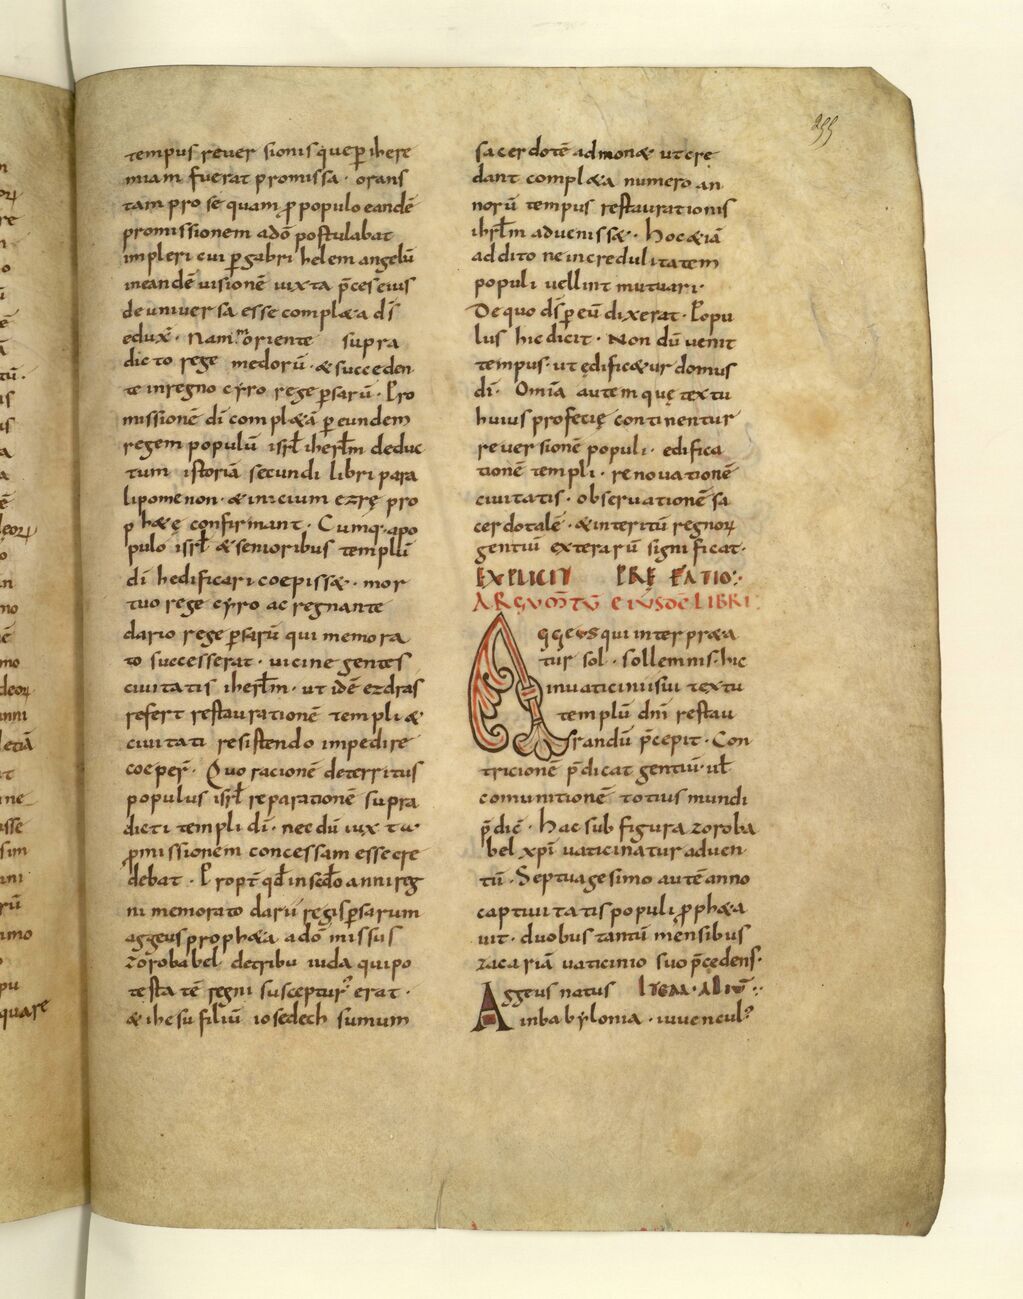 255
tempus reuersionis que ꝑ ihere
miam fuerat promissa · orans
tam pro se quam ꝓ populo eandē
promissionem adō postulabat
impleri cui ꝑ gabrihelem angelū
ineandē uisionē iuxta p̄ces eius
de uniuersa esse complæa dī
edux̄ · Nam moriente supra
dicto rege medorū · & succeden
te inregno cyro rege ꝑsarū · Pro
missionē dī complæā ꝑ eundem
regem populū isrł iherłm deduc
tum istoriā secundi libri para
lipomenon · & inicium ezrę pro
phæę confirmant · Cumq· apo
pulo isrł & senioribus templū
dī hedificari coepiss& · mor
tuo rege cyro ac regnante
dario rege ꝑsarū qui memora
to successerat · uicine gentes
ciuitatis iherłm · ut idē ezdras
refert restaurationē templi &
ciuitati resistendo impedire
coeper̄ · Quo racionē deterritus
populus isrł reparationē supra
dicti templi dī · necdū iuxta
ꝓmissionem concessam esse cre
debat · Propt̄ qđ in sēdo anni reg
ni memorato darii regis ꝑsarum
aggeus prophæa adō missus
zorobabel detribu iuda qui po
testatē regni susceptur᾽ erat ·
& ihesu filiū iosedech sumum
sacerdotē admon& ut cre
dant complæa numero an
norū tempus restaurationis
ihrłm aduenisse · Hoc &iā
addito ne incredulitatem
populi uellint mutuari ·
De quo dſ ꝑ eū dixerat · Popu
lus hic dicit · Non dū uenit
tempus · ut ędific&ur domus
dī · Omīa autem quę textu
huius profecię continentur
reuersionē populi · edifica
tionē templi · renouationē
ciuitatis · obseruationē sa
cerdotalē · & interitū regnoꝝ
gentiū exterarū significat ·
EXPLICIT PRĘFATIO:·
ARGUMTŪ EIUSDĒ LIBRI
Aggeus qui interpræa
tur sol · sollemnis · hic
in uaticinii sui textu
templū dnī restau
randū p̄cepit · Con
tricionē p̄dicat gentiū · uł
comunitionē totius mundi
p̄dic̄ · Hac sub figura zoroba
bel xpī uaticinatur aduen
tū · Septuagesimo autē anno
captiuitatis populi ꝓph&a
uit · duobus tantū mensibus
zacariā uaticinio suo p̄cędens ·
Aggeus natus ITEM · ALIŪ:·
in babylonia · iuuencul᾽